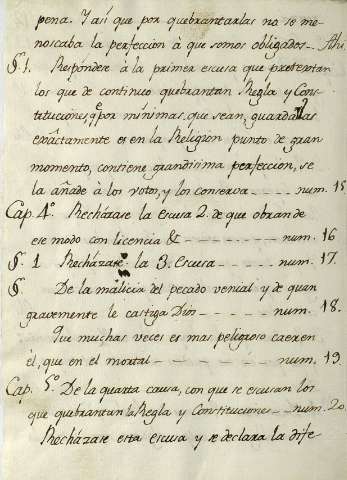 pena. Y así que por quebrantarlas no se me-
noscaba la perfeccion à que somos obligados
§ 1. Respondese à la primer escusa que pretextan
los que de continuo quebrantan Regla y Cons-
tituciones, q̃ por mínimas que sean, guardarlas
exàctamente es en la Religion punto de gran
momento, contiene grandisima perfeccion, se
la añade à los votos, y los conserva ---- num. 15
Cap. 4º. Recházase la Escusa 2. de que obran de
ese modo con licencia &c ---- num. 16
§. 1 Recházase la 3. Escusa ---- num. 17.
§ De la malicia del pecado venial y de quan
gravemente le castiga Dios ---- num. 18.
Que muchas veces es mas peligroso caer en
el, que en el mortal ---- num. 19
Cap. 5º. De la quarta causa, con que se escusan los
que quebrantan la Regla y Constituciones -- num. 20
Recházase esta escusa y se declara la dife-